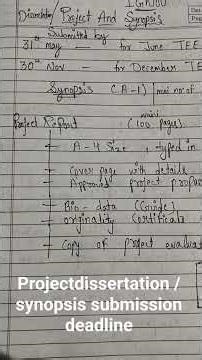 IGNOU
Dissertation Project And Synopsis
Submitted by
31st may for June TEE
30th Nov - for December TEE
Synopsis (A-1) mini no of
mini
Project Report (100 pages)
A-4 Size, typed in
Cover page with details
Approved project propos
Bio-data (Guide)
originality Certificate
Copy of project evaluat
Projectdissertation /
synopsis submission
deadline